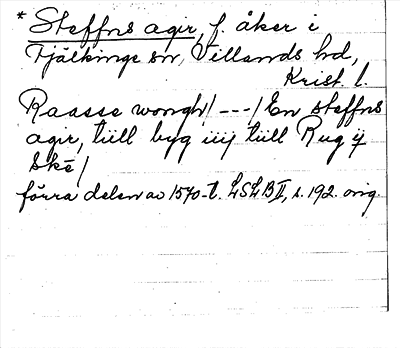 * Steffns agir, f. åker i
Fjälkinge sn, Villands hd,
Krist. l.
Raasse wongh/---/En steffns
agir, tiill byg iiij tiill Rug ij
Skē/
förra delen av 1570-t. LSLB II, s. 192. orig.